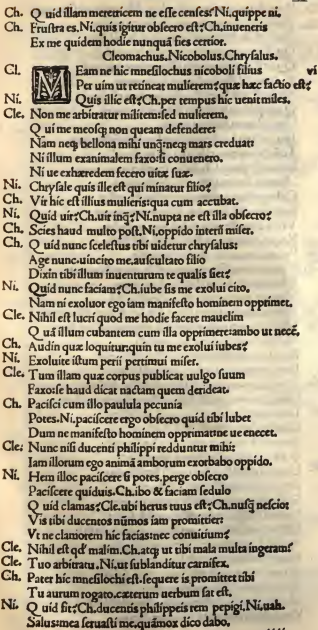 Ch. Quid illam meretricem ne esse censes? Ni. quippe ni.
Ch. Frustra es. Ni. quis igitur obsecro est? Ch. inueneris
Ex me quidem hodie nunquã fies certior.
Cleomachus. Nicobolus. Chrysalus.
Cl. MEam ne hic mnesilochus nicoboli filius vi
Per uim ut retineat mulierem? quæ hæc factio est?
Ni. Quis illic est? Ch. per tempus hic uenit miles.
Cle. Non me arbitratur militem: sed mulierem.
Qui me meosq; non queam defendere:
Nam neq; bellona mihi unq̃: neq; mars creduat:
Ni illum exanimalem faxo: si conuenero.
Ni ue exhæredem fecero uitæ suæ.
Ni. Chrysale quis ille est qui minatur filio?
Ch. Vir hic est illius mulieris: qua cum accubat.
Ni. Quid uir? Ch. uir inq̃? Ni. nupta ne est illa obsecro?
Ch. Scies haud multo post. Ni. oppido interii miser.
Ch. Quid nunc scelestus tibi uidetur chrysalus?
Age nunc uincito me. auscultato filio
Dixin tibi illum inuenturum te qualis siet?
Ni. Quid nunc faciam? Ch. iube sis me exolui cito.
Nam ni exoluor ego iam manifesto hominem opprimet.
Cle. Nihil est lucri quod me hodie facere mauelim
Quã illum cubantem cum illa opprimere: ambo ut necẽ.
Ch. Audin quæ loquitur: quin tu me exolui iubes?
Ni. Exoluite istum perii pertimui miser.
Cle. Tum illam quæ corpus publicat uulgo suum
Faxo: se haud dicat nactam quem derideat.
Ch. Pacisci cum illo paulula pecunia
Potes. Ni. paciscere ergo obsecro quid tibi lubet
Dum ne manifesto hominem opprimat: ne ue enecet.
Cle: Nunc nisi ducenti philippi redduntur mihi:
Iam illorum ego animã amborum exorbabo oppido.
Ni. Hem illoc paciscere si potes. perge obsecro
Paciscere quiduis. Ch. ibo & faciam sedulo
Quid clamas? Cle. ubi herus tuus est? Ch. nusq̃ nescio?
Vis tibi ducentos nũmos iam promittier:
Vt ne clamorem hic facias: nec conuitium?
Cle. Nihil est qđ malim. Ch. atq; ut tibi mala multa ingeram?
Cle. Tuo arbitratu. Ni. ut sublanditur carnifex.
Ch. Pater hic mnesilochi est. sequere is promittet tibi
Tu aurum rogato. cæterum uerbum sat est.
Ni. Quid fit? Ch. ducentis philippeis rem pepigi. Ni. uah.
Salus: mea seruasti me. quãmox dico dabo.